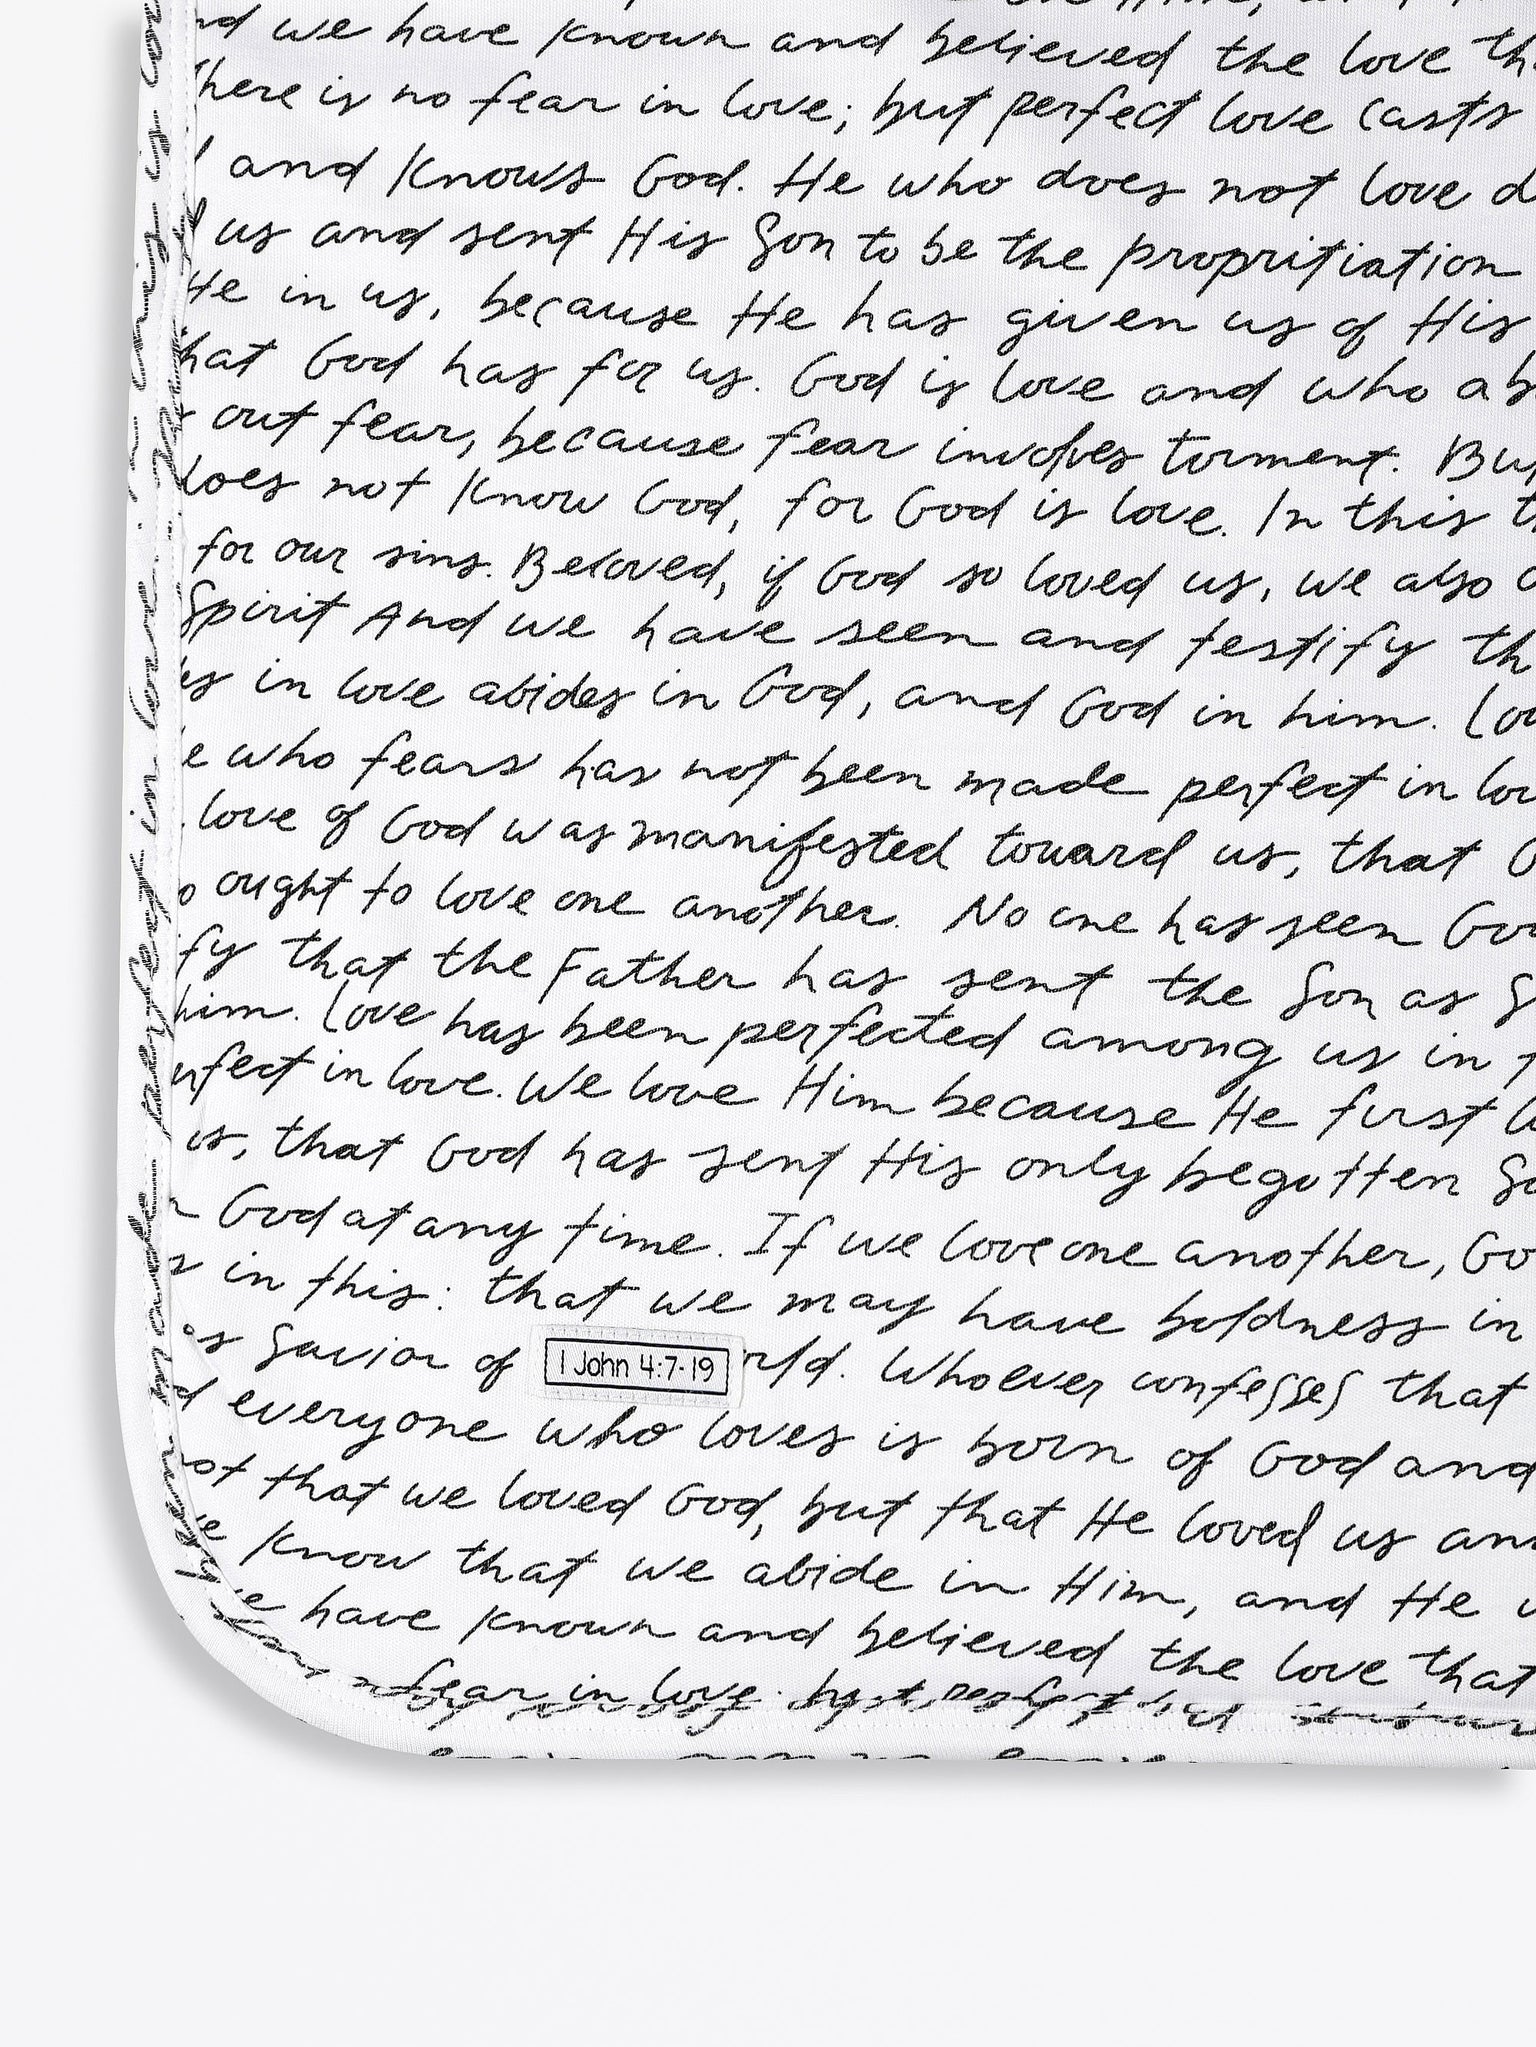 we have known and believed the love
there is no fear in love; but perfect love casts
and knows God. He who does not love
us and sent His Son to be the propritiation
He in us, because He has given us of His
that God has for us. God is love and who
out fear, because fear involves torment.
does not know God, for God is love. In this
for our sins. Beloved, if God so loved us, we also
Spirit And we have seen and testify
in love abides in God, and God in him.
who fears has not been made perfect in
love of God was manifested toward us, that
ought to love one another. No one has seen
that the Father has sent the Son as
him. Love has been perfected among us in
in love. We love Him because He first
us, that God has sent His only begotten
God at any time. If we love one another,
in this: that we may have boldness in
as Savior of
1 John 4:7-19
Whoever confesses that
everyone who loves is born of God and
that we loved God, but that He loved us
know that we abide in Him, and He
have known and believed the love that
fear in love
made perfect in love